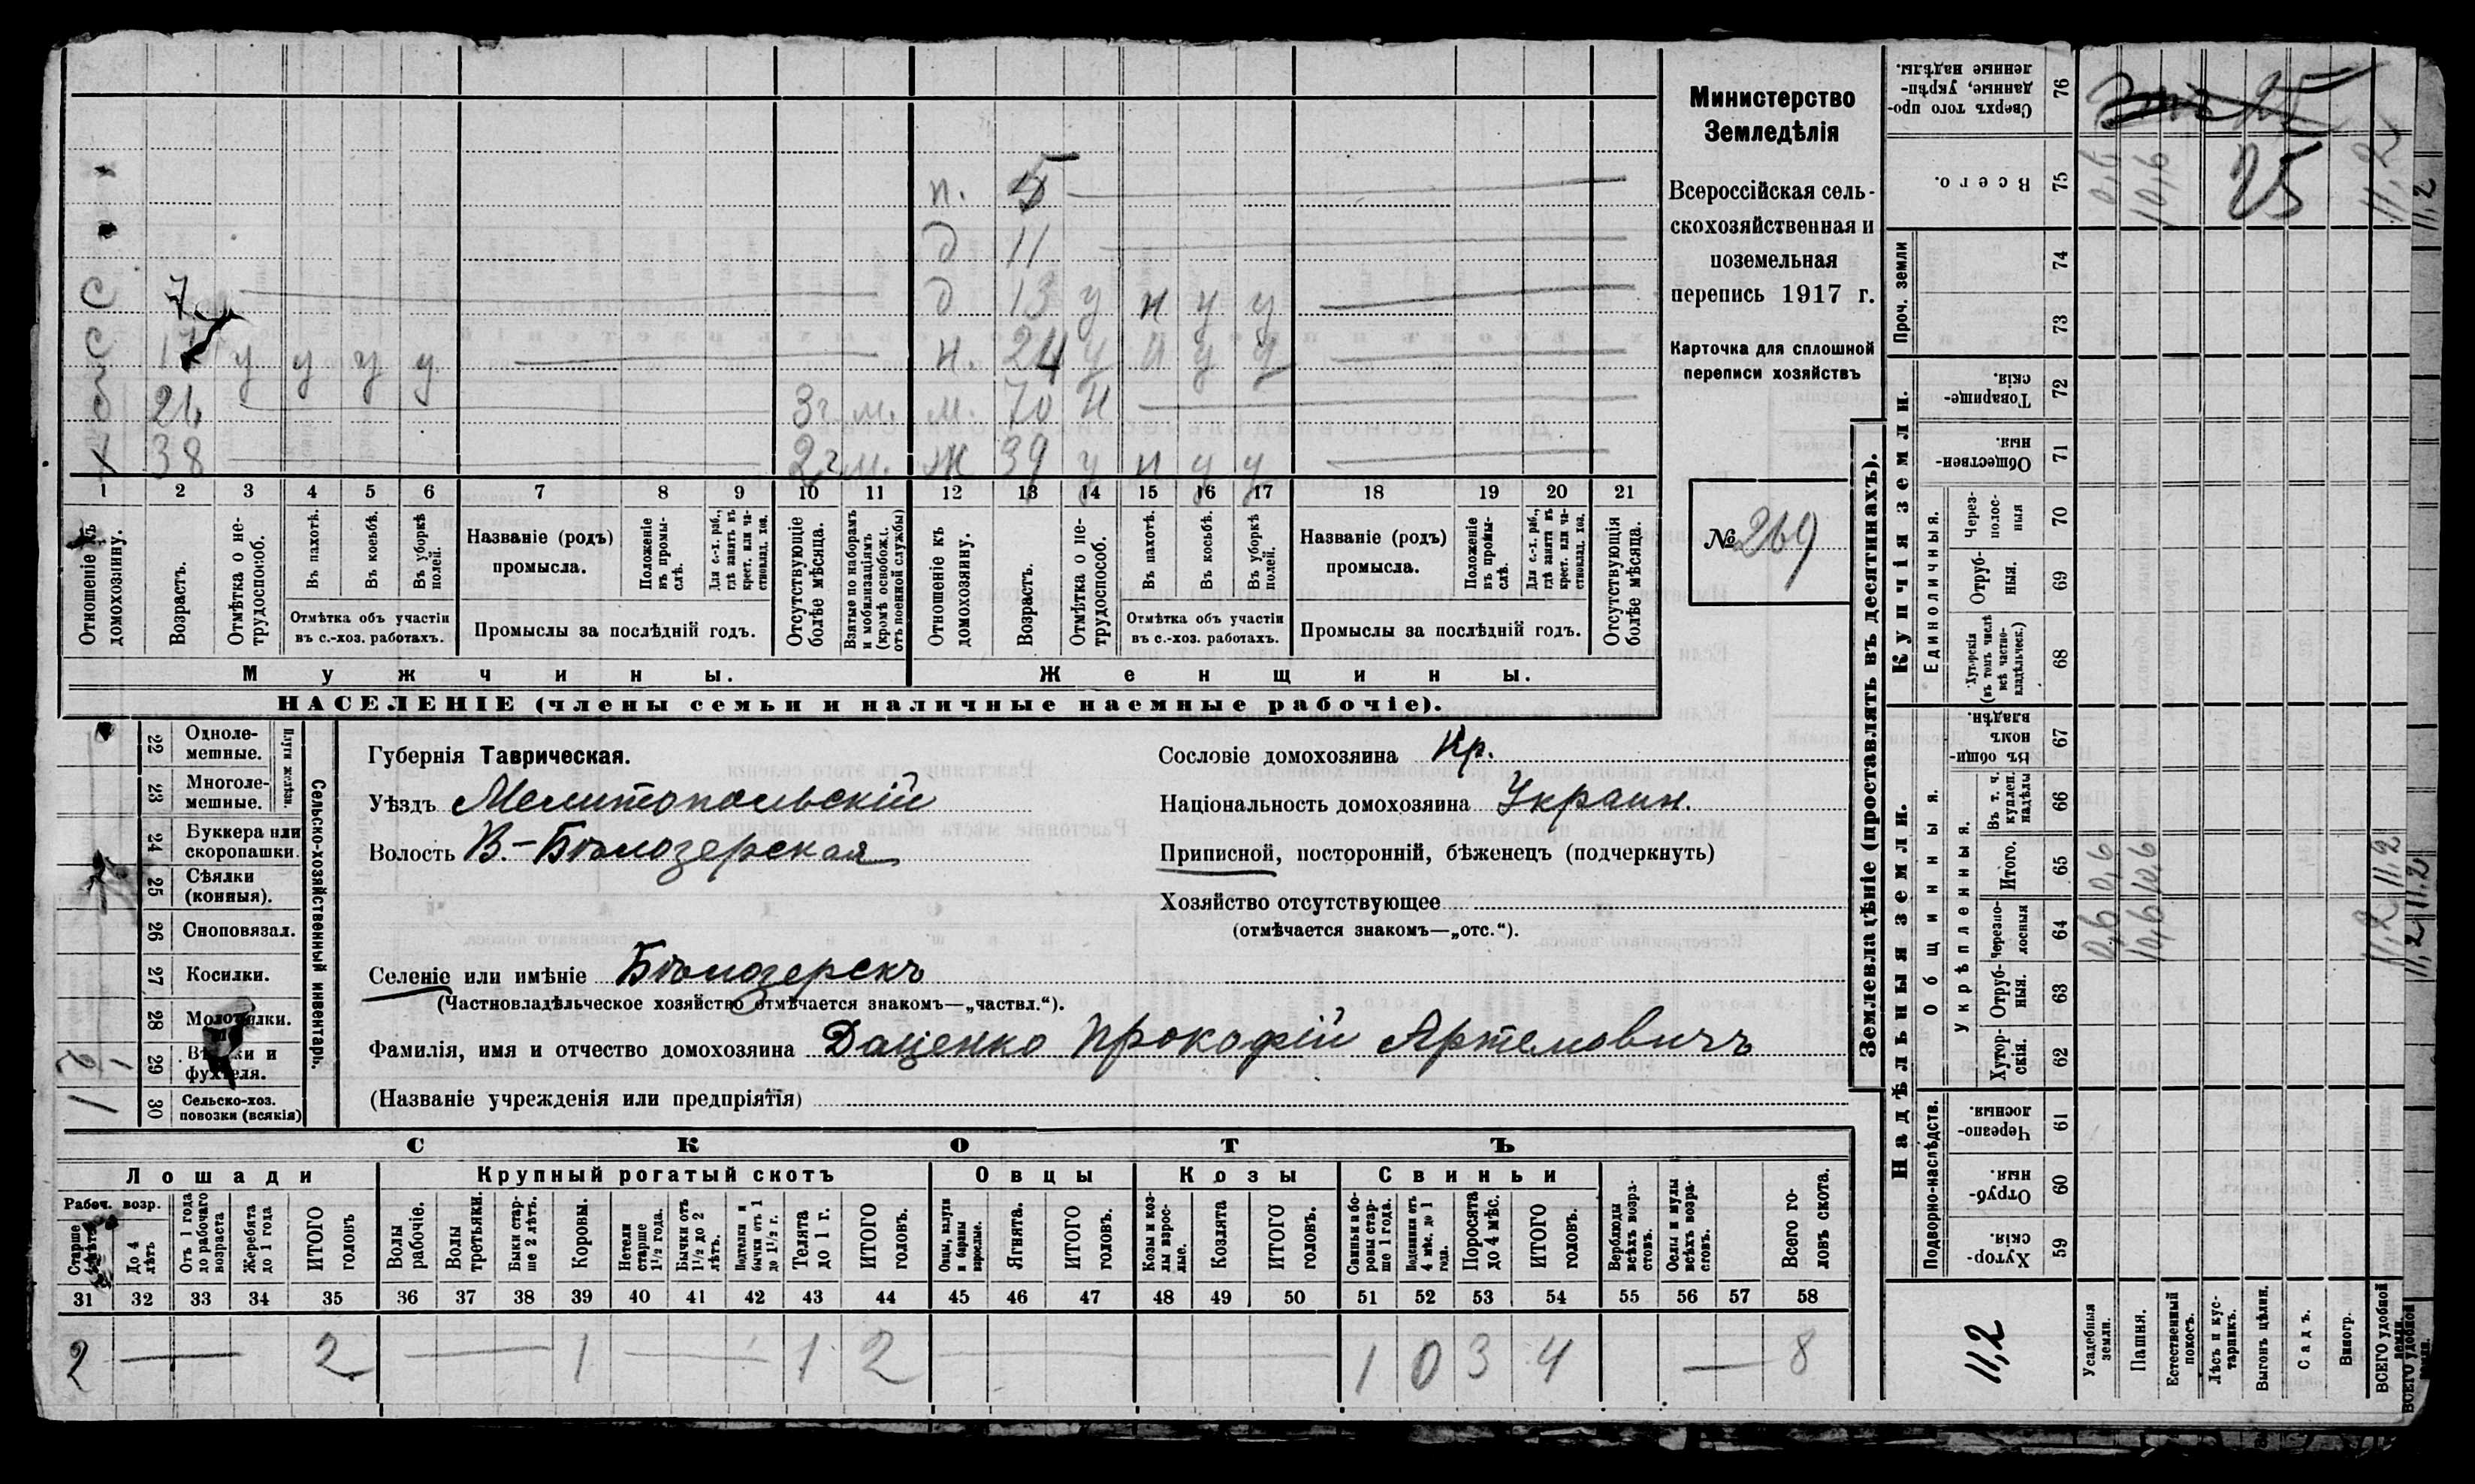 Министерство
Земледѣлія
Всероссійская сель-
скохозяйственная и
поземельная
перепись 1917 г.
Карточка для сплошной
переписи хозяйствъ
№ 269
п. 5
д 11
С 7 д 13 у н у у
С у у у у н. 24 у н у у
3 г. м. м. 70 н
38 2 г. м. ж 39 у н у у
1 2 3 4 5 6 7 8 9 10 11 12 13 14 15 16 17 18 19 20 21
Отношеніе къ домохозяину.
Возрастъ.
Отмѣтка о не-трудоспособ.
Въ пахотѣ.
Въ косьбѣ.
Въ уборкѣ полей.
Отмѣтка объ участіи въ с.-хоз. работахъ.
Названіе (родъ) промысла.
Положеніе въ промы-слѣ.
Для с.-х. раб., гдѣ занятъ въ крест. или ча-стновлад. хоз.
Промыслы за послѣдній годъ.
Отсутствующіе болѣе мѣсяца.
Взятые по наборамъ и мобилизаціямъ (кромѣ освобожд. отъ военной службы)
Отношеніе къ домохозяину.
Возрастъ.
Отмѣтка о не-трудоспособ.
Въ пахотѣ.
Въ косьбѣ.
Въ уборкѣ полей.
Отмѣтка объ участіи въ с.-хоз. работахъ.
Названіе (родъ) промысла.
Положеніе въ промы-слѣ.
Для с.-х. раб., гдѣ занятъ въ крест. или ча-стновлад. хоз.
Промыслы за послѣдній годъ.
Отсутствующія болѣе мѣсяца.
Мужчины. Женщины.
НАСЕЛЕНІЕ (члены семьи и наличные наемные рабочіе).
Сельско-хозяйственный инвентарь.
Плуги желѣзн.
22 Одноле-мешные.
23 Многоле-мешные.
24 Буккера или скоропашки.
25 Сѣялки (конныя).
26 Сноповязал.
27 Косилки.
28 Молотилки.
29 Вѣялки и фухтеля.
1 30 Сельско-хоз. повозки (всякія)
Губернія Таврическая.
Уѣздъ Мелитопольскій
Волость В.-Бѣлозерская
Селеніе или имѣніе Бѣлозерскъ
(Частновладѣльческое хозяйство отмѣчается знакомъ—„частвл.“).
Фамилія, имя и отчество домохозяина Даценко Прокофій Артемовичъ
(Названіе учрежденія или предпріятія)
Сословіе домохозяина Кр.
Національность домохозяина Украин.
Приписной, посторонній, бѣженецъ (подчеркнуть)
Хозяйство отсутствующее
(отмѣчается знакомъ—„отс.“).
СКОТЪ
Лошади Крупный рогатый скотъ Овцы Козы Свиньи
Рабоч. возр.
Старше
До 4 лѣтъ
Отъ 1 года до рабочаго возраста
Жеребята до 1 года
ИТОГО головъ
Волы рабочіе.
Волы третьяки.
Быки стар-ше 2 лѣтъ.
Коровы.
Нетели старше 1½ года.
Бычки отъ 1½ до 2 лѣтъ.
Подтелки и бычки отъ 1 до 1½ г.
Телята до 1 г.
ИТОГО головъ.
Овцы, валухи и бараны взрослые.
Ягнята.
ИТОГО головъ.
Козы и коз-лы взрос-лые.
Козлята
ИТОГО головъ.
Свиньи и бо-ровы стар-ше 1 года.
Подсвинки отъ 4 мѣс. до 1 года.
Поросята до 4 мѣс.
ИТОГО головъ.
Верблюды всѣхъ возра-стовъ.
Ослы и мулы всѣхъ возра-стовъ.
Всего го-ловъ скота.
31 32 33 34 35 36 37 38 39 40 41 42 43 44 45 46 47 48 49 50 51 52 53 54 55 56 57 58
2 — 2 — 1 — 1 2 — 1 0 3 4 — 8
Землевладѣніе (проставлять въ десятинахъ).
Купчія земли.
Надѣльныя земли.
76 Сверхъ того про-данные, укрѣп-ленные надѣлы.
75 Всего. 0,6 10,6 25 11,2 11,2
Проч. земли
74
73
72 Товарище-скія.
71 Обществен-ныя.
Единоличныя.
70 Через-полос-ныя
69 Отруб-ныя.
68 Хуторскія (въ томъ числѣ всѣ частно-владѣльческ.)
67 Въ общи-номъ владѣн.
Общинныя.
Укрѣпленныя.
66 Въ т. ч. куплен. надѣлы
65 Итого. 0,6 10,6 11,2 11,2
64 Черезпо-лосныя 0,6 10,6 11,2 11,2
63 Отруб-ныя.
62 Хутор-скія.
Подворно-наслѣдств.
61 Черезпо-лосныя.
60 Отруб-ныя.
59 Хутор-скія.
11,2
Усадебныя земли.
Пашня.
Естественный покосъ.
Лѣсъ и кус-тарникъ.
Выгонъ цѣлин.
Садъ.
Виногр.
ВСЕГО удобной земли.
ВСЕГО удобной земли.